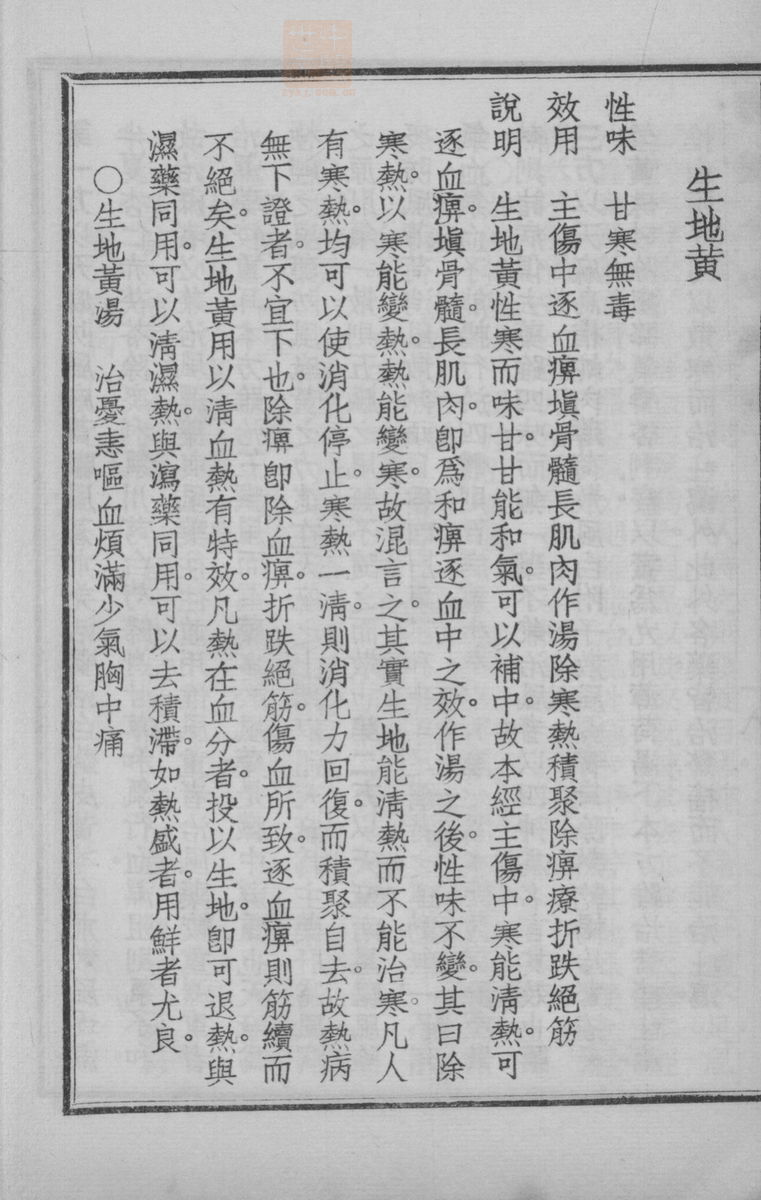 生地黃
性味　甘寒無毒
效用　主傷中逐血痹塡骨髓長肌肉作湯除寒熱積聚除痹療折跌絕筋
說明　生地黃性寒而味甘。甘能和氣。可以補中。故本經主傷中。寒能淸熱。可
逐血痹。塡骨髓。長肌肉。卽爲和痹逐血中之效。作湯之後。性味不變。其曰除
寒熱。以寒能變熱。熱能變寒。故混言之。其實生地能淸熱而不能治寒。凡人
有寒熱。均可以使消化停止。寒熱一淸。則消化力回復。而積聚自去。故熱病
無下證者。不宜下也。除痹卽除血痹。折跌絕筋。傷血所致。逐血痹則筋續而
不絕矣。生地黃用以淸血熱有特效。凡熱在血分者。投以生地。卽可退熱。與
濕藥同用。可以淸濕熱。與瀉藥同用。可以去積滯。如熱盛者。用鮮者尤良。
〇生地黃湯　治憂恚嘔血煩滿少氣胸中痛